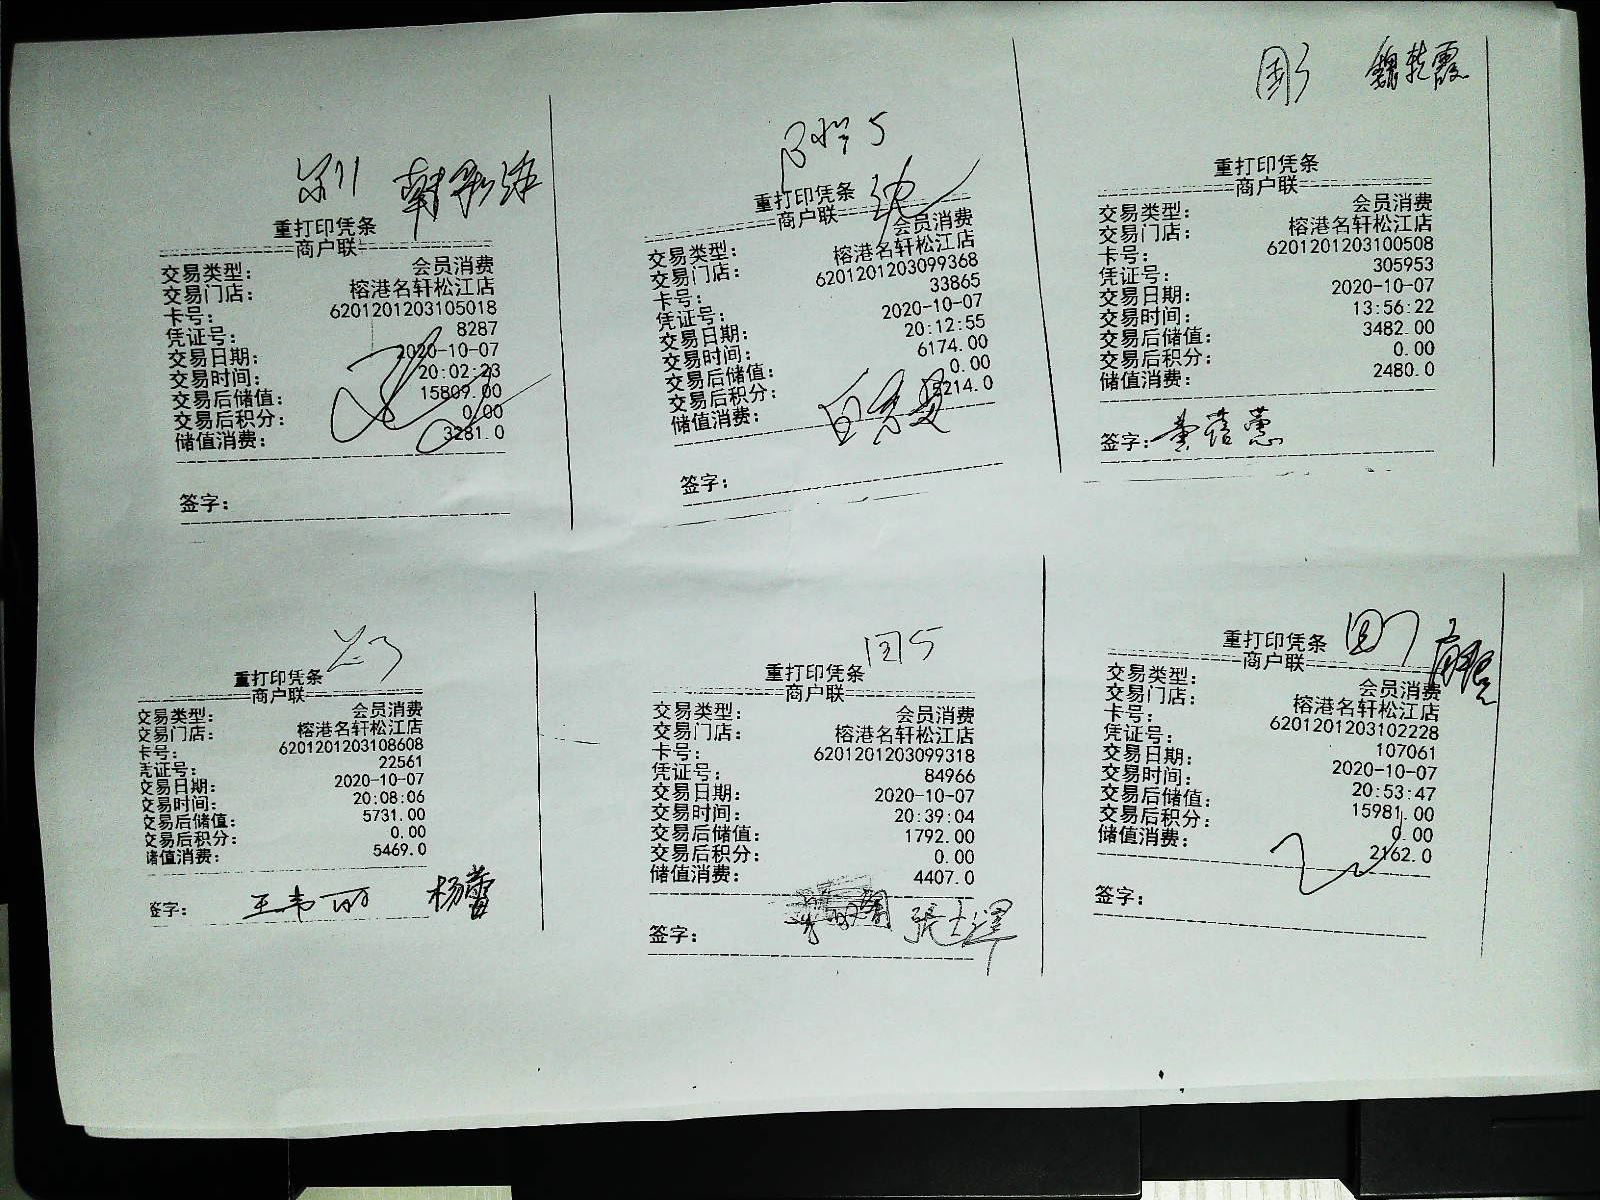 重打印凭条
商户联
交易类型: 会员消费
交易门店: 榕港名轩松江店
卡号: 6201201203105018
凭证号: 8287
交易日期: 2020-10-07
交易时间: 20:02:23
交易后储值: 15809.00
交易后积分: 0.00
储值消费: 3281.0
签字:
重打印凭条
商户联
交易类型: 会员消费
交易门店: 榕港名轩松江店
卡号: 6201201203099368
凭证号: 33865
交易日期: 2020-10-07
交易时间: 20:12:55
交易后储值: 6174.00
交易后积分: 0.00
储值消费: 5214.0
签字:
重打印凭条
商户联
交易类型: 会员消费
交易门店: 榕港名轩松江店
卡号: 6201201203100508
凭证号: 305953
交易日期: 2020-10-07
交易时间: 13:56:22
交易后储值: 3482.00
交易后积分: 0.00
储值消费: 2480.0
签字:
重打印凭条
商户联
交易类型: 会员消费
交易门店: 榕港名轩松江店
卡号: 6201201203108608
凭证号: 22561
交易日期: 2020-10-07
交易时间: 20:08:06
交易后储值: 5731.00
交易后积分: 0.00
储值消费: 5469.0
签字: 杨蕾
重打印凭条
商户联
交易类型: 会员消费
交易门店: 榕港名轩松江店
卡号: 6201201203099318
凭证号: 84966
交易日期: 2020-10-07
交易时间: 20:39:04
交易后储值: 1792.00
交易后积分: 0.00
储值消费: 4407.0
签字: 張士澤
重打印凭条
商户联
交易类型: 会员消费
交易门店: 榕港名轩松江店
卡号: 6201201203102228
凭证号: 107061
交易日期: 2020-10-07
交易时间: 20:53:47
交易后储值: 15981.00
交易后积分: 0.00
储值消费: 2162.0
签字: